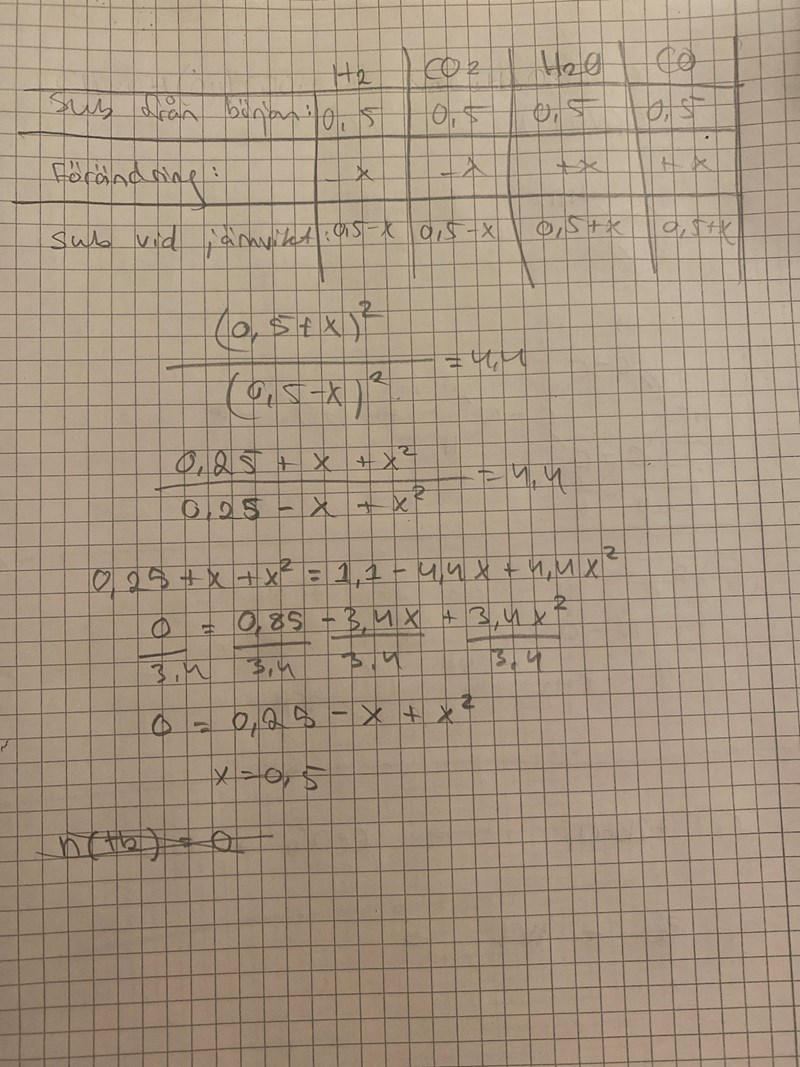 H2 CO2 H2O CO
Sub från början: 0,5 0,5 0,5 0,5
Förändring: -x -x +x +x
Sub vid jämvikt: 0,5-x 0,5-x 0,5+x 0,5+x
(0,5+x)²
(0,5-x)² = 4,4
0,25 + x + x²
0,25 - x + x² = 4,4
0,25 + x + x² = 1,1 - 4,4x + 4,4x²
0 = 0,85 - 3,4x + 3,4x²
3,4 3,4 3,4 3,4
0 = 0,25 - x + x²
x = 0,5
n(H2) = 0